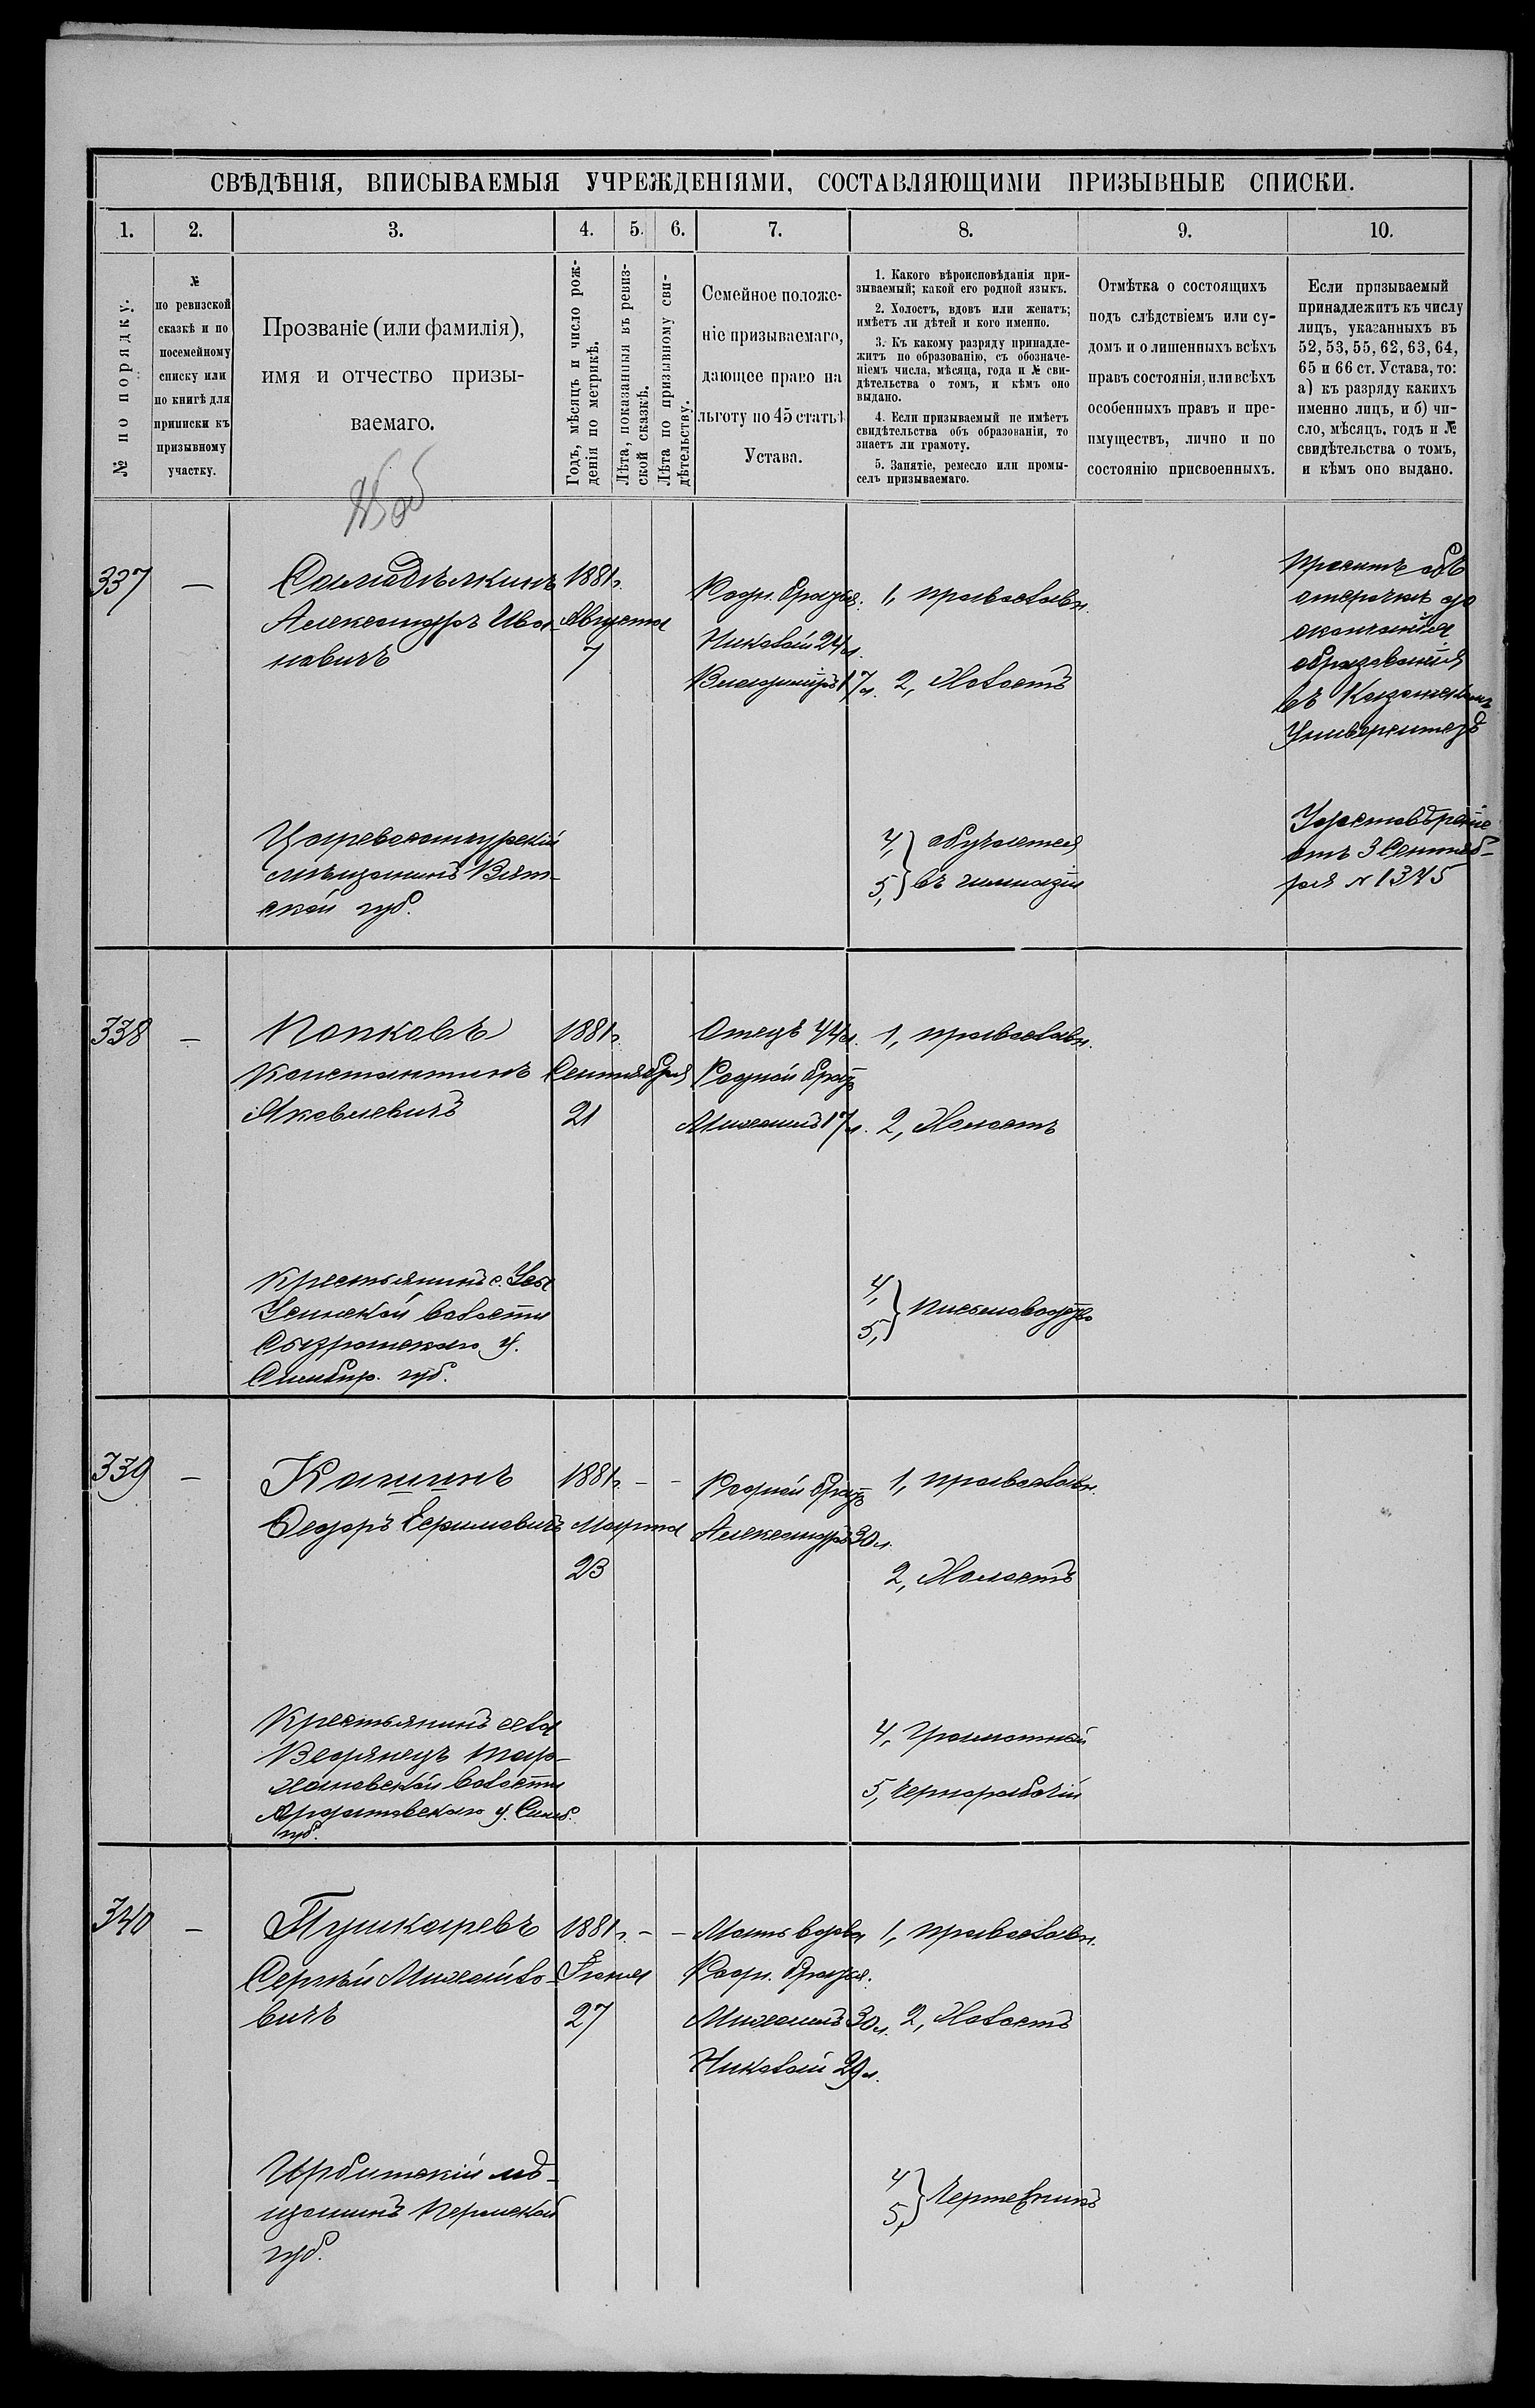 СВѢДѢНІЯ, ВПИСЫВАЕМЫЯ УЧРЕЖДЕНІЯМИ, СОСТАВЛЯЮЩИМИ ПРИЗЫВНЫЕ СПИСКИ.
1. 2. 3. 4. 5. 6. 7. 8. 9. 10.
№ по порядку.
№
по ревизской
сказкѣ и по
посемейному
списку или
по книгѣ для
приписки къ
призывному
участку.
Прозваніе (или фамилія),
имя и отчество призы-
ваемаго.
Годъ, мѣсяцъ и число рож-
денія по метрикѣ.
Лѣта, показанныя въ ревиз-
ской сказкѣ.
Лѣта по призывному сви-
дѣтельству.
Семейное положе-
ніе призываемаго,
дающее право на
льготу по 45 статьѣ
Устава.
1. Какого вѣроисповѣданія при-
зываемый; какой его родной языкъ.
2. Холостъ, вдовъ или женатъ;
имѣетъ ли дѣтей и кого именно.
3. Къ какому разряду принадле-
житъ по образованію, съ обозначе-
ніемъ числа, мѣсяца, года и № сви-
дѣтельства о томъ, и кѣмъ оно
выдано.
4. Если призываемый не имѣетъ
свидѣтельства объ образованіи, то
знаетъ ли грамоту.
5. Занятіе, ремесло или промы-
селъ призываемаго.
Отмѣтка о состоящихъ
подъ слѣдствіемъ или су-
домъ и о лишенныхъ всѣхъ
правъ состоянія, или всѣхъ
особенныхъ правъ и пре-
имуществъ, лично и по
состоянію присвоенныхъ.
Если призываемый
принадлежитъ къ числу
лицъ, указанныхъ въ
52, 53, 55, 62, 63, 64,
65 и 66 ст. Устава, то:
а) къ разряду какихъ
именно лицъ, и б) чи-
сло, мѣсяцъ, годъ и №
свидѣтельства о томъ,
и кѣмъ оно выдано.
337 —
Самодѣлкинъ
Александръ Ива-
новичъ
1881 г.
Августа
7
Родн. братья:
Николай 24 л.
Владиміръ 17 л.
1, православн.
2, Холостъ
Проситъ объ
отсрочкѣ до
окончанія
образованія
въ Казанскомъ
Университетѣ
Царевосанчурскій
мѣщанинъ Вят-
ской губ.
4,
5, } обучается
въ гимназіи
Удостовѣреніе
отъ 3 Сентяб-
ря № 1345
338 —
Попковъ
Константинъ
Яковлевичъ
1881 г.
Сентября
21
Отецъ 44 л.
Родной братъ
Михаилъ 17 л.
1, православн.
2, Холостъ
Крестьянинъ с. Усы
Усинской волости
Сызранскаго у.
Симбир. губ.
4,
5, } Письмоводство
339 —
Кашинъ
Ѳедоръ Ефимовичъ
1881 г. — —
Марта
23
Родной братъ
Александръ 30 л.
1, православн.
2, Холостъ
Крестьянинъ села
Ведянецъ Тар-
хановской волости
Ардатовскаго у. Симб.
губ.
4, Грамотный
5, Чернорабочій
340 —
Пушкаревъ
Сергѣй Михайло-
вичъ
1881 г. — —
Іюня
27
Мать вдова
Родн. братья:
Михаилъ 30 л.
Николай 29 л.
1, православн.
2, Холостъ
Ирбитскій мѣ-
щанинъ Пермской
губ.
4
5, } Чертежникъ